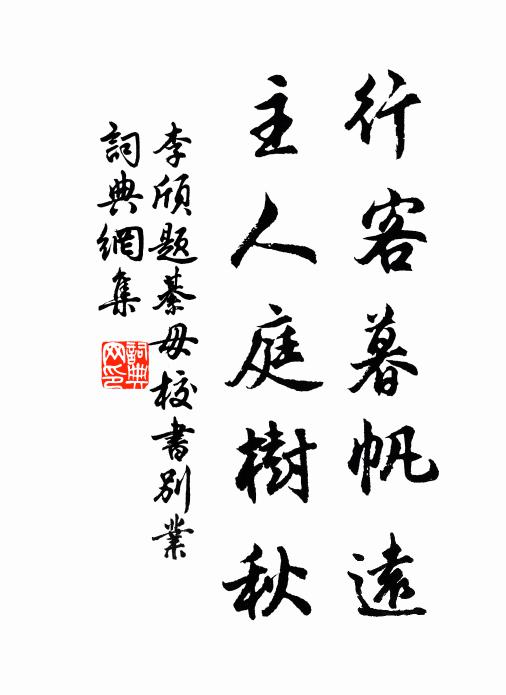 行客暮帆遠
主人庭樹秋
李頎題綦毋校書別業
詞典網集
詞典網印